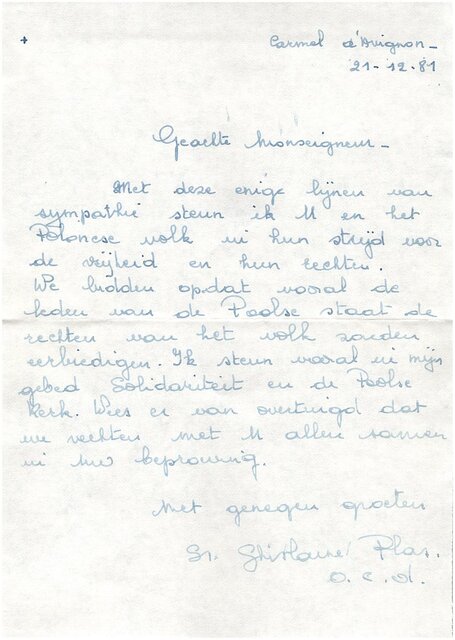 +
Carmel d'Avignon -
21-12-81
Geachte Monseigneur -
Met deze enige lijnen van
sympathie steun ik U en het
Polonese volk in hun strijd voor
de vrijheid en hun rechten.
We bidden opdat vooral de
leden van de Poolse staat de
rechten van het volk zouden
eerbiedigen. Ik steun vooral in mijn
gebed Solidariteit en de Poolse
Kerk. Wees er van overtuigd dat
we vechten met U allen samen
in uw beproeving.
Met genegen groeten
Sr. Ghislaine Plas.
o.c.d.